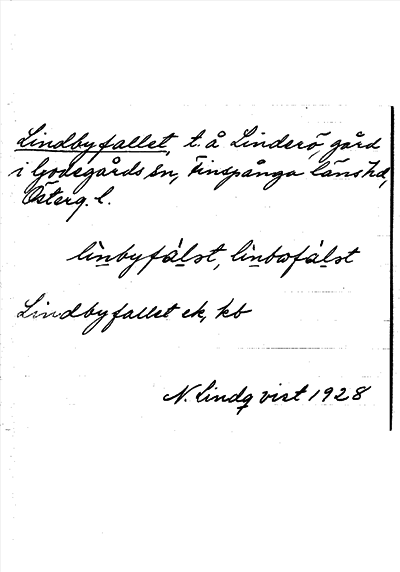 Lindbyfallet, t. å Linderö, gård
i Godegårds sn, Finspånga läns hd,
Österg. l.
lìnbyfá̀lst, lìnbofá̀lst
Lindbyfallet ek, kb
N. Lindqvist 1928